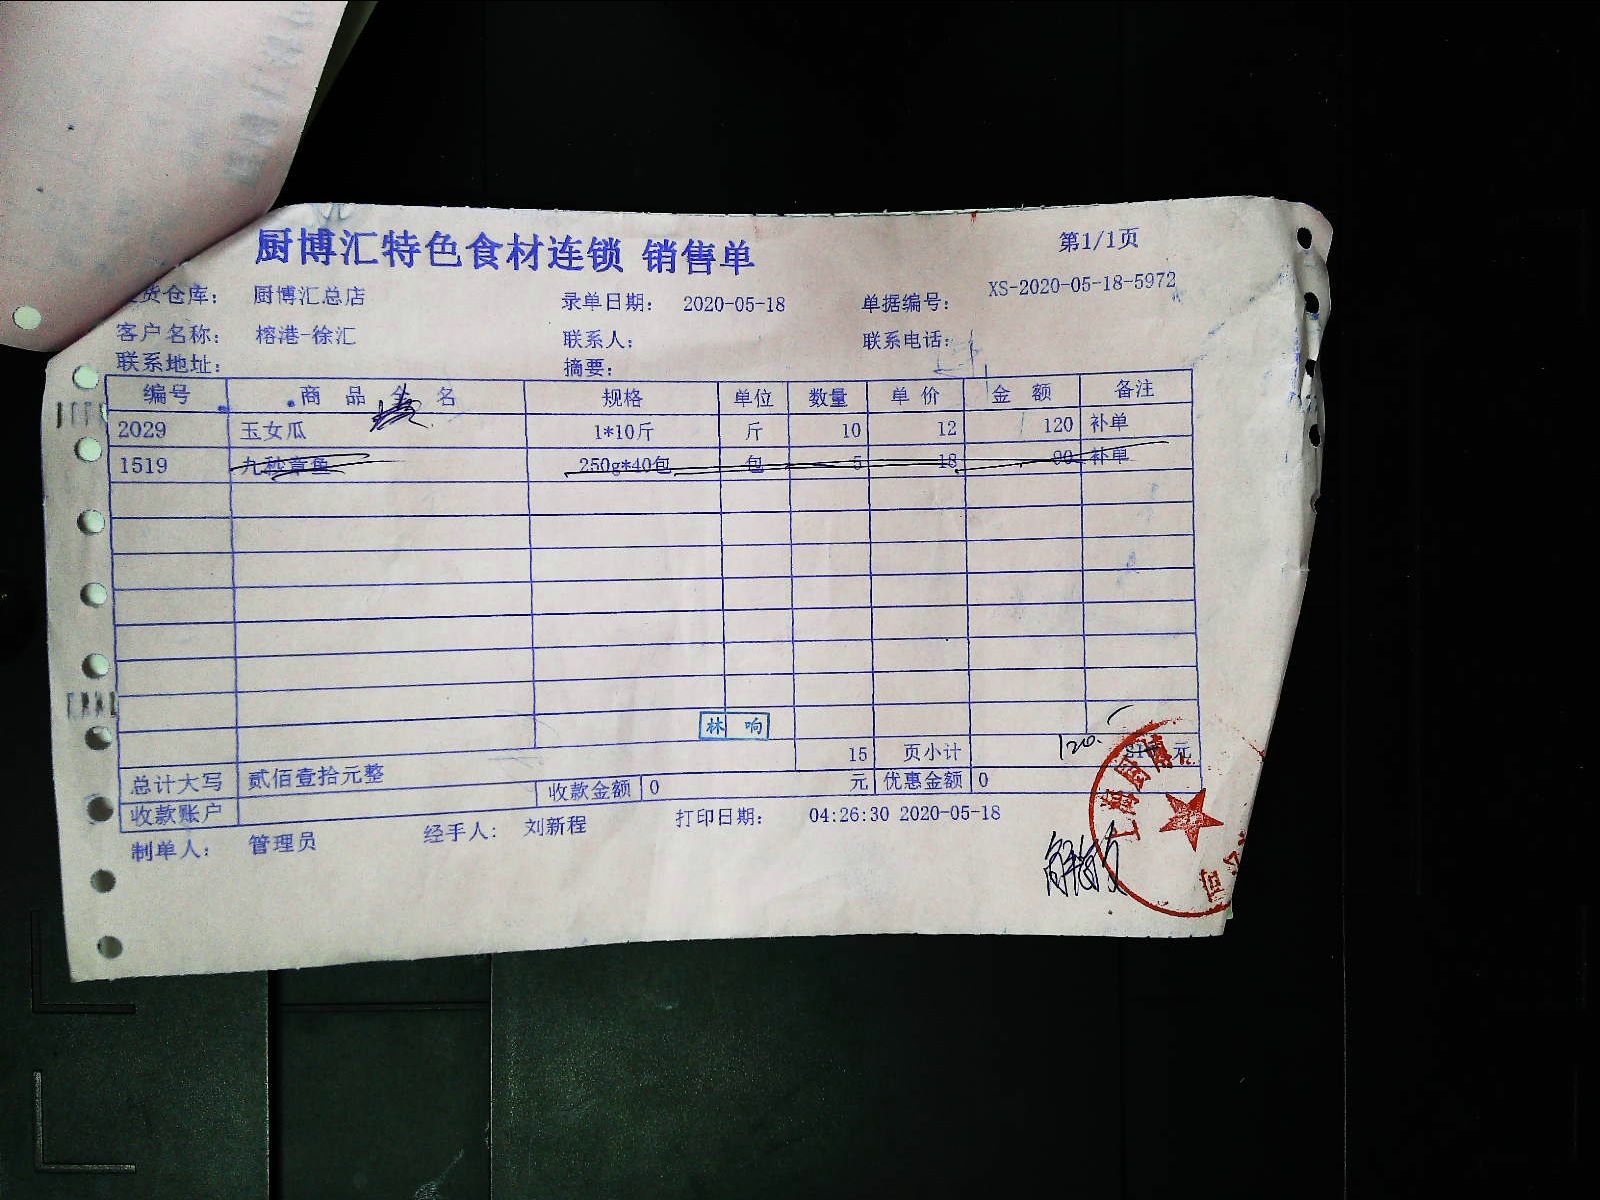 厨博汇特色食材连锁 销售单
第1/1页
货仓库： 厨博汇总店 录单日期： 2020-05-18 单据编号： XS-2020-05-18-5972
客户名称： 榕港-徐汇 联系人： 联系电话：
联系地址： 摘要：
编号 商品全名 规格 单位 数量 单价 金额 备注
2029 玉女瓜 1*10斤 斤 10 12 120 补单
1519 九秒章鱼 250g*40包 包 5 18 90 补单
林响
15 页小计 120. 元
总计大写 贰佰壹拾元整 收款金额 0 元 优惠金额 0
收款账户
制单人： 管理员 经手人： 刘新程 打印日期： 04:26:30 2020-05-18
上海厨博
公司